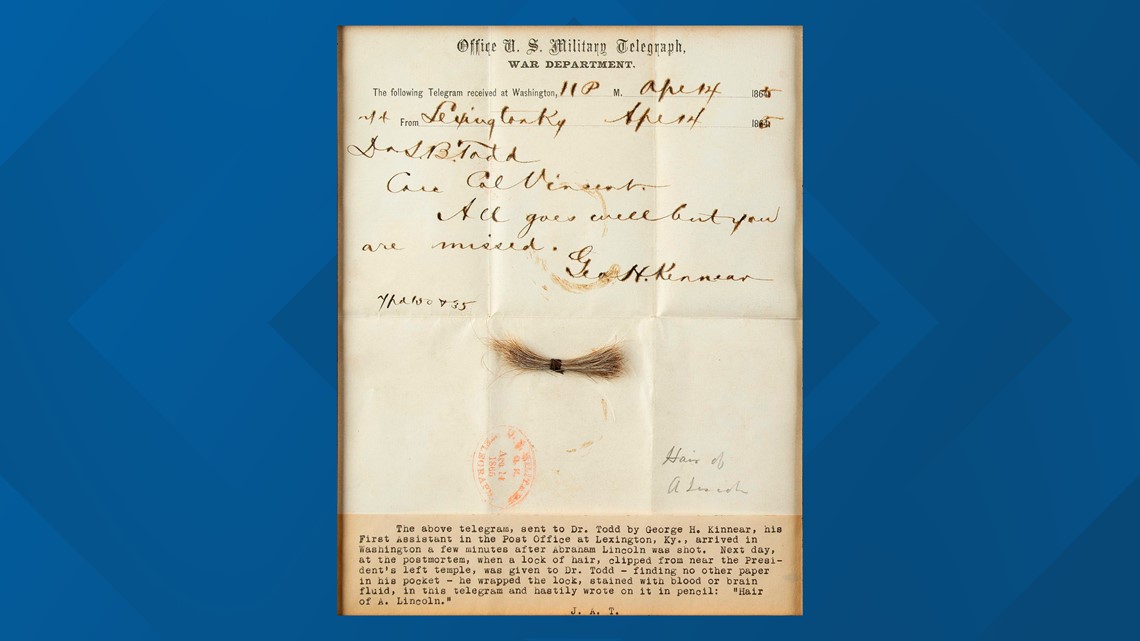 Office U. S. Military Telegraph,
WAR DEPARTMENT.
The following Telegram received at Washington, 11 P M. Apl 14 1865
From Lexington Ky Apl 14 1865
Dr L.B. Todd
Care Col Vincent.
All goes well but you
are missed.
Geo. H. Kennear
Hair of
A Lincoln
U.S. MILITARY
Apr 14
1865
TELEGRAPH
The above telegram, sent to Dr. Todd by George H. Kinnear, his
First Assistant in the Post Office at Lexington, Ky., arrived in
Washington a few minutes after Abraham Lincoln was shot. Next day,
at the postmortem, when a lock of hair, clipped from near the Presi-
dent's left temple, was given to Dr. Todd - finding no other paper
in his pocket - he wrapped the lock, stained with blood or brain
fluid, in this telegram and hastily wrote on it in pencil: "Hair
of A. Lincoln."
J. A. T.